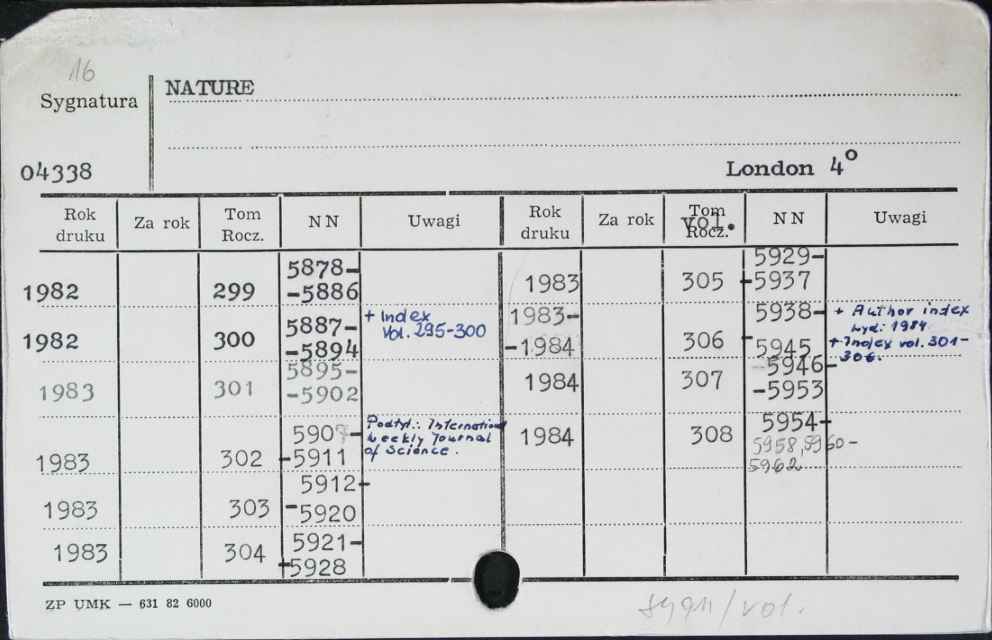 16
Sygnatura
NATURE
04338
London 4°
Rok druku Za rok Tom Rocz. NN Uwagi Rok druku Za rok Tom Rocz. vol. NN Uwagi
1982 299 5878-
-5886
1982 300 5887-
-5894
+ Index
Vol. 295-300
1983 301 5895-
-5902
1983 302 590 -
-5911
Podtyt.: International
weekly Journal
of Science.
1983 303 5912-
-5920
1983 304 5921-
-5928
1983 305 5929-
-5937
1983-
-1984 306 5938-
-5945
+ Author index
wyd. 1984
+ Index vol. 301-
306.
1984 307 5946-
-5953
1984 308 5954-
5958, 5960-
5962
ZP UMK — 631 82 6000
sygn/vol.